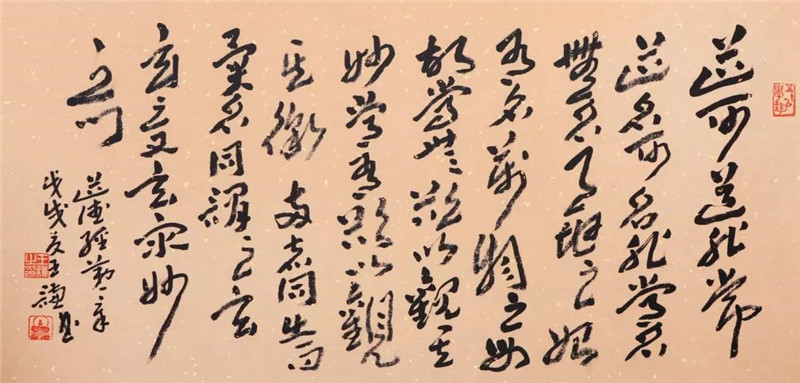 道可道非常
道名可名非常名
無名天地之始
有名萬物之母
故常無欲以觀其
妙常有欲以觀
其徼兩者同出而
異名同謂之玄
玄之又玄眾妙
之門
道德經第一章
戊戌夏王謙書